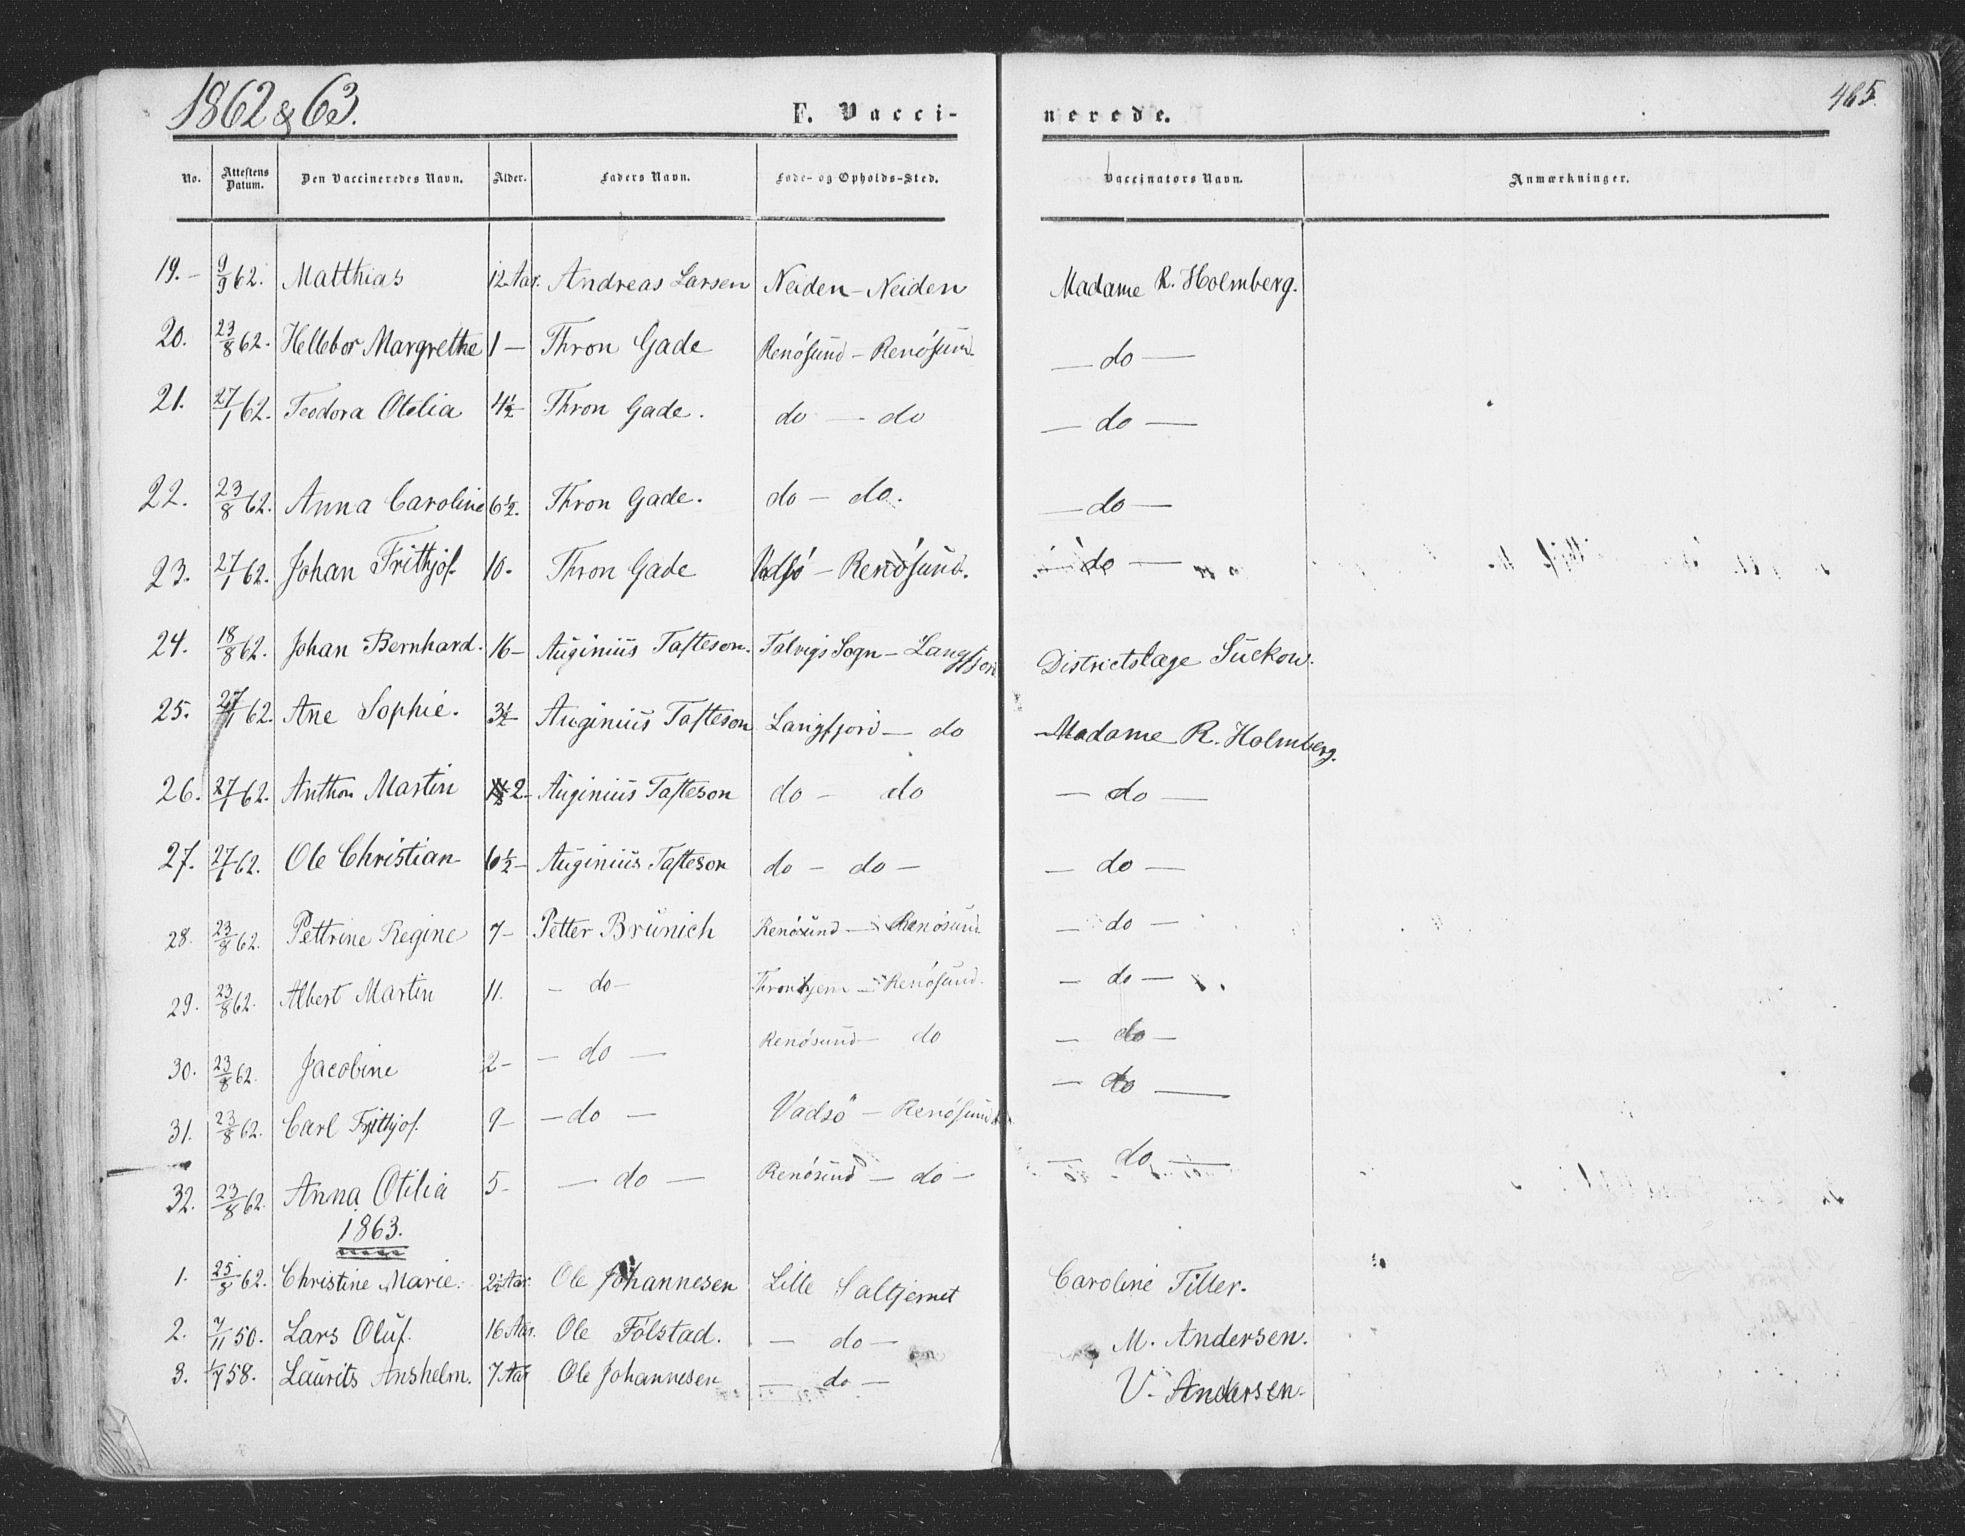 1862 & 63.
F. Vacci-
nerede.
465.
No. Attestens Datum. Den Vaccineredes Navn. Alder. Faders Navn. Føde- og Opholds-Sted. Vaccinators Navn. Anmærkninger.
19. - 9/9 62. Matthias 12 Aar. Andreas Larsen Neiden - Neiden Madame R. Holmberg.
20. 23/8 62. Hellebor Margrethe 1 — Thron Gade Renösund - Renösund. — do —
21. 27/1 62. Teodora Otelia 4½ - Thron Gade. do — do — do —
22. 23/8 62. Anna Caroline 6½. Thron Gade. do — do. — do —
23. 27/1 62. Johan Frithjof. 10. Thron Gade Vadsö - Renösund. — do —
24. 18/8 62. Johan Bernhard. 16 - Auginius Tafteson. Talvigs Sogn - Langfjord Districtslæge Suckow.
25. 27/1 62. Ane Sophie. 3½ - Auginius Tafteson Langfjord — do Madame R. Holmberg.
26. 27/1 62. Anthon Martin 2 - Auginius Tafteson do - do — do —
27. 27/1 62. Ole Christian 6½ - Auginius Tafteson do — do — — do —
28. 23/8 62. Pettrine Regine 7 - Petter Brünich Renösund — Renösund — do —
29. 23/8 62. Albert Martin 11. — do — Thronhjem — Renösund. — do —
30. 23/8 62. Jacobine 2 - — do — Renösund — do — do —
31. 23/8 62. Carl Frithjof. 9 - — do — Vadsö — Renösund — do —
32. 23/8 62. Anna Otilia 5 - — do — Renösund — do — — do —
1863.
1. 25/8 62. Christine Marie. 2½ Aar. Ole Johannesen Lille Saltjernet Caroline Tiller.
2. 7/11 50. Lars Oluf. 16 Aar. Ole Fölstad. — do — M. Andersen.
3. 58. Laurits Anshelm. 7 Aar Ole Johannesen — do — V. Andersen.